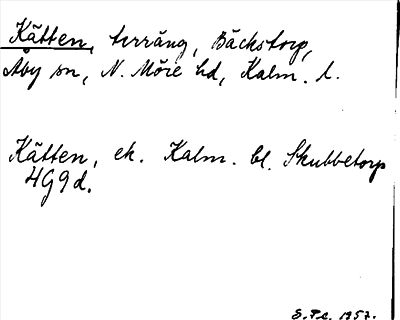 Kätten, terräng, Bäckstorp,
Åby sn, N. Möre hd, Kalm. l.
Kätten, ek. Kalm. bl. Skubbetorp
4G9d.
S.P.e. 1957.